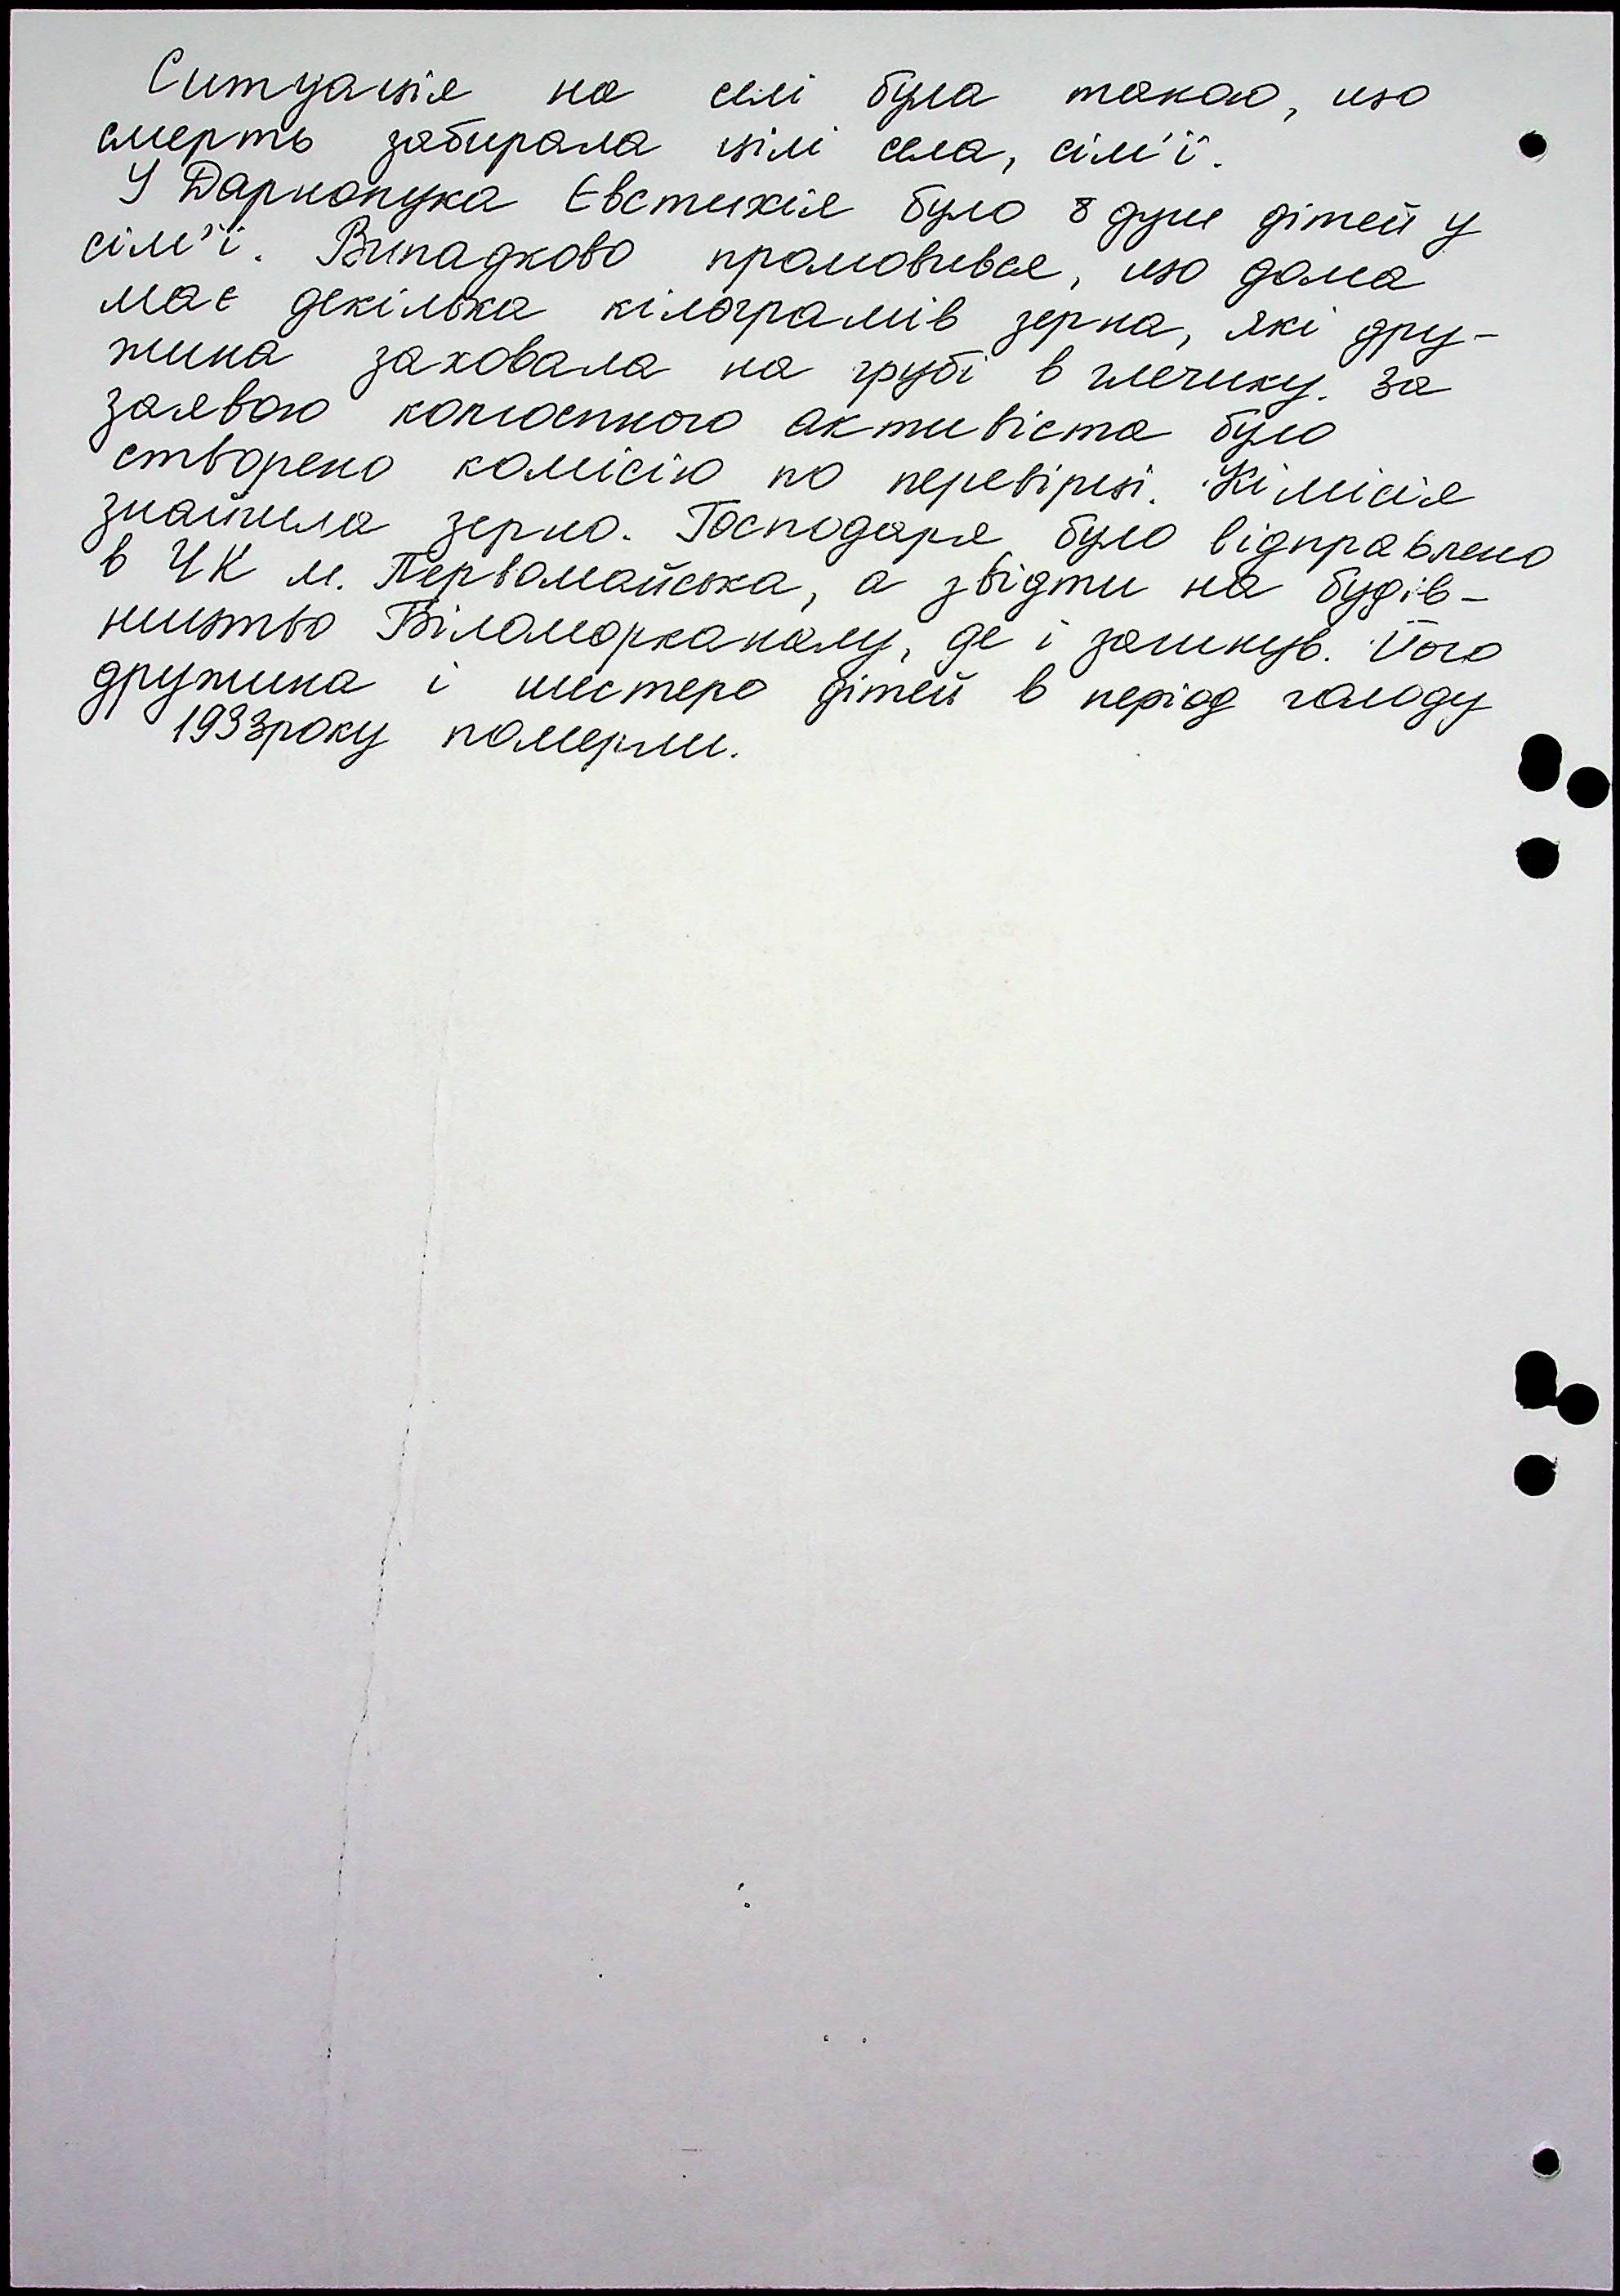 Ситуація на селі була такою, що
смерть забирала цілі села, сім'ї.
У Дарнопука Євстихія було 8 душ дітей у
сім'ї. Випадково промовився, що дома
має декілька кілограмів зерна, які дру-
жина заховала на грубі в глечику. За
заявою колгоспного активіста було
створено комісію по перевірці. Комісія
знайшла зерно. Господаря було відправлено
в ЧК м. Первомайська, а звідти на будів-
ництво Біломорканалу, де і загинув. Його
дружина і шестеро дітей в період голоду
1933року померли.